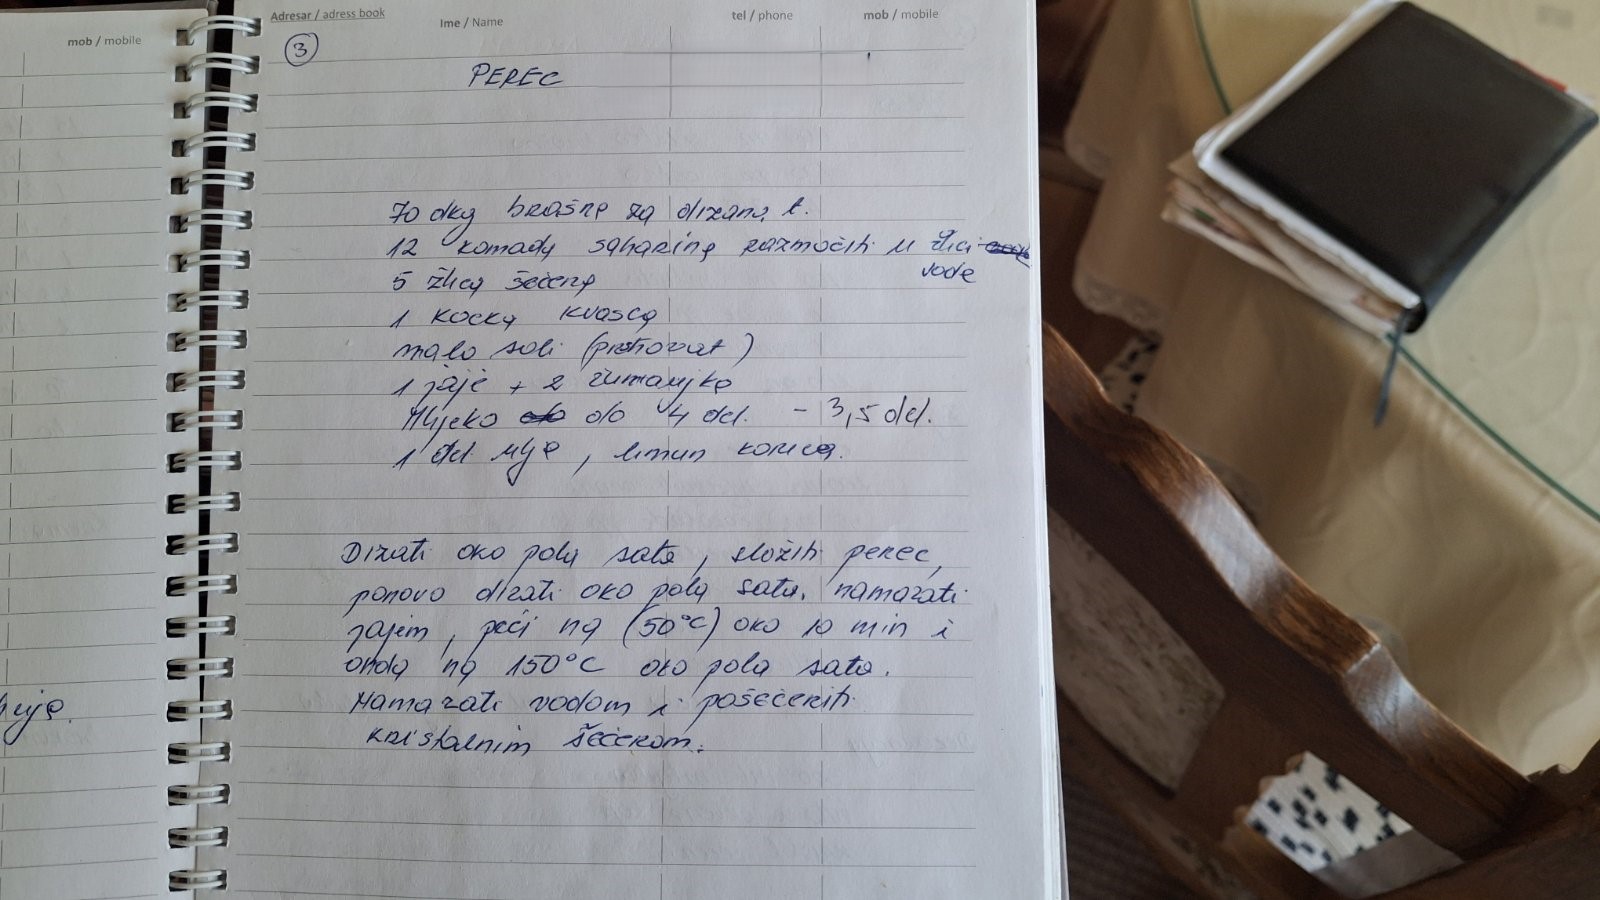 mob / mobile
huje.
Adresar / adress book
Ime / Name
tel / phone
mob / mobile
3
PEREC
70 dkg brašna za dizana t.
12 komada saharina razmočiti u žlici
vode
5 žlica šećera
1 kocka kvasca
malo soli (probovat)
1 jaje + 2 žumanjka
Mlijeko do 4 del. - 3,5 del.
1 del ulja, limun korica.
Dizati oko pola sata, složiti perec,
ponovo dizati oko pola sata. namazati
jajem, peći na (50°C) oko 10 min i
onda na 150°C oko pola sata.
Namazati vodom i pošećeriti
kristalnim šećerom.